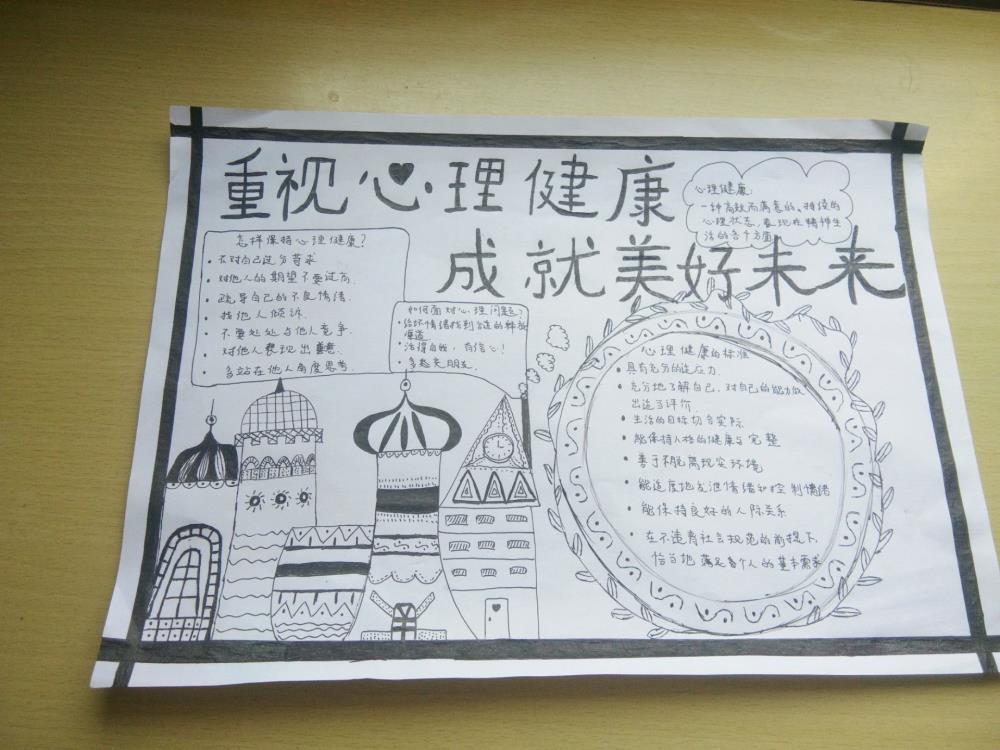 重视心理健康
成就美好未来
心理健康:
一种高效而满意的、持续的
心理状态,表现在精神生
活的各个方面
怎样保持心理健康?
• 不对自己过分苛求
• 对他人的期望不要过高.
• 疏导自己的不良情绪.
找他人倾诉.
• 不要处处与他人竞争.
• 对他人表现出善意.
• 多站在他人角度思考.
如何面对心理问题?
• 给坏情绪找到合适的释放
渠道.
• 活得自我,有信心!
• 多惹交朋友.
心理健康的标准
• 具有充分的适应力.
• 充分地了解自己,对自己的能力做
出适当评价.
• 生活的目标切合实际
• 能保持人格的健康与完整
• 善于不脱离现实环境
• 能适度地发泄情绪和控制情绪
• 能保持良好的人际关系
• 在不违背社会规范的前提下,
恰当地满足各个人的基本需求